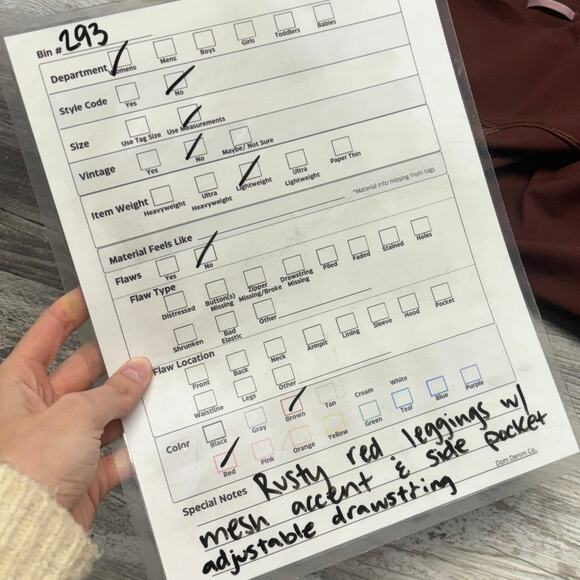 Bin # 293
Department Womens Mens Boys Girls Toddlers Babies
Style Code Yes No
Size Use Tag Size Use Measurements
Vintage Yes No Maybe/ Not Sure
Item Weight Heavyweight Ultra Heavyweight Lightweight Ultra Lightweight Paper Thin
*Material info missing from tags
Material Feels Like
Flaws Yes No
Flaw Type Distressed Button(s) Missing Zipper Missing/Broke Drawstring Missing Piled Faded Stained Holes
Shrunken Bad Elastic Other
Flaw Location Front Back Neck Armpit Lining Sleeve Hood Pocket
Waistline Legs Other
Color Black Gray Brown Tan Cream White
Red Pink Orange Yellow Green Teal Blue Purple
Special Notes Rusty red leggings w/
mesh accent & side pocket
adjustable drawstring
Dom Denim Co.